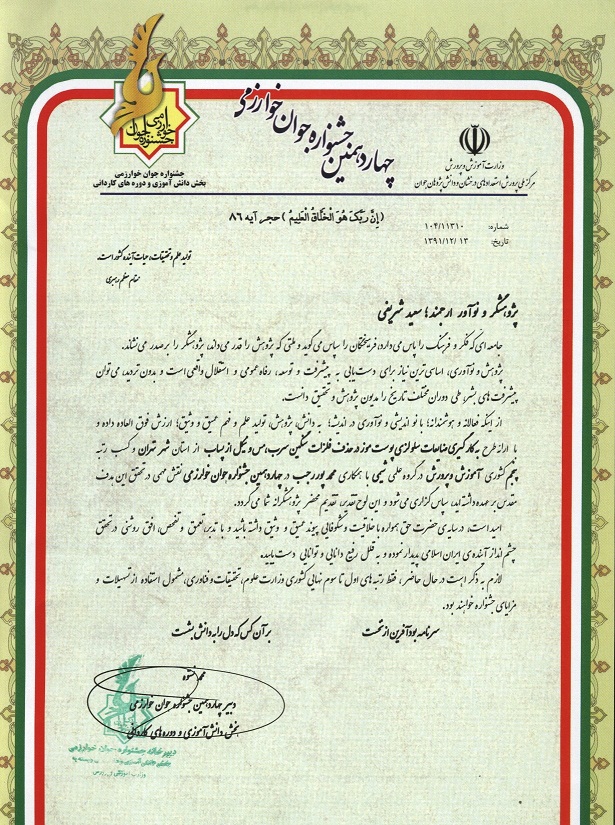 چهاردهمین جشنواره جوان خوارزمی
جشنواره جوان خوارزمی
جشنواره جوان خوارزمی
بخش دانش آموزی و دوره های کاردانی
وزارت آموزش و پرورش
مرکز ملی پرورش استعدادهای درخشان و دانش پژوهان جوان
(إنَّ رَبَّکَ هُوَ الْخَلّاقُ الْعَلیمُ) حجر، آیه ۸۶
شماره: ۱۰۴/۱۱۳۱۰
تاریخ: ۱۳۹۱/۱۲/۱۳
تولید علم و تحقیقات، حیات آینده کشور است.
مقام معظم رهبری
پژوهشگر و نوآور ارجمند؛ سعید شریفی
جامعه ای که فکر و فرهنگ را پاس می دارد، فرهیختگان را سپاس می گوید و ملتی که پژوهش را قدر می داند، پژوهشگر را بر صدر می نشاند.
پژوهش و نوآوری، اساسی ترین نیاز برای دست یابی به پیشرفت و توسعه، رفاه عمومی و استقلال واقعی است و بدون تردید، می توان
پیشرفت های بشر، طی دوران مختلف تاریخ را مدیون پژوهش و تحقیق دانست.
از اینکه فعالانه و هوشمندانه؛ با نو اندیشی و نوآوری در اندیشه؛ به دانش، پژوهش، تولید علم و فهم عمیق و دقیق؛ ارزش فوق العاده داده و
با ارائه طرح به کارگیری ضایعات سلولزی پوست موز در حذف فلزات سنگین سرب، مس و نیکل از پساب از استان شهر تهران و کسب رتبه
پنجم کشوری آموزش و پرورش در گروه علمی شیمی با همکاری محمد پوررجب در چهاردهمین جشنواره جوان خوارزمی نقش مهمی در تحقق این هدف
مقدس بر عهده داشته اید، سپاس گزاری می شود و این لوح تقدیر، تقدیم محضر پژوهشگرانه شما می گردد.
امید است، در سایه ی حضرت حق همواره با خلاقیت و شکوفایی پیوند عمیق و وثیق داشته باشید و با تدبر، تعمق و تفحص، افق روشنی در تحقق
چشم انداز آینده ی ایران اسلامی پدیدار نموده و به قلل رفیع دانایی و توانایی دست یابید.
لازم به ذکر است در حال حاضر، فقط رتبه های اول تا سوم نهایی کشوری وزارت علوم، تحقیقات و فناوری، مشمول استفاده از تسهیلات و
مزایای جشنواره خواهند بود.
سرنامه بود آفرین از نخست بر آن کس که دل را به دانش بشست
محمد
دبیر چهاردهمین جشنواره جوان خوارزمی
بخش دانش آموزی و دوره های کاردانی
دبیرخانه جشنواره جوان خوارزمی